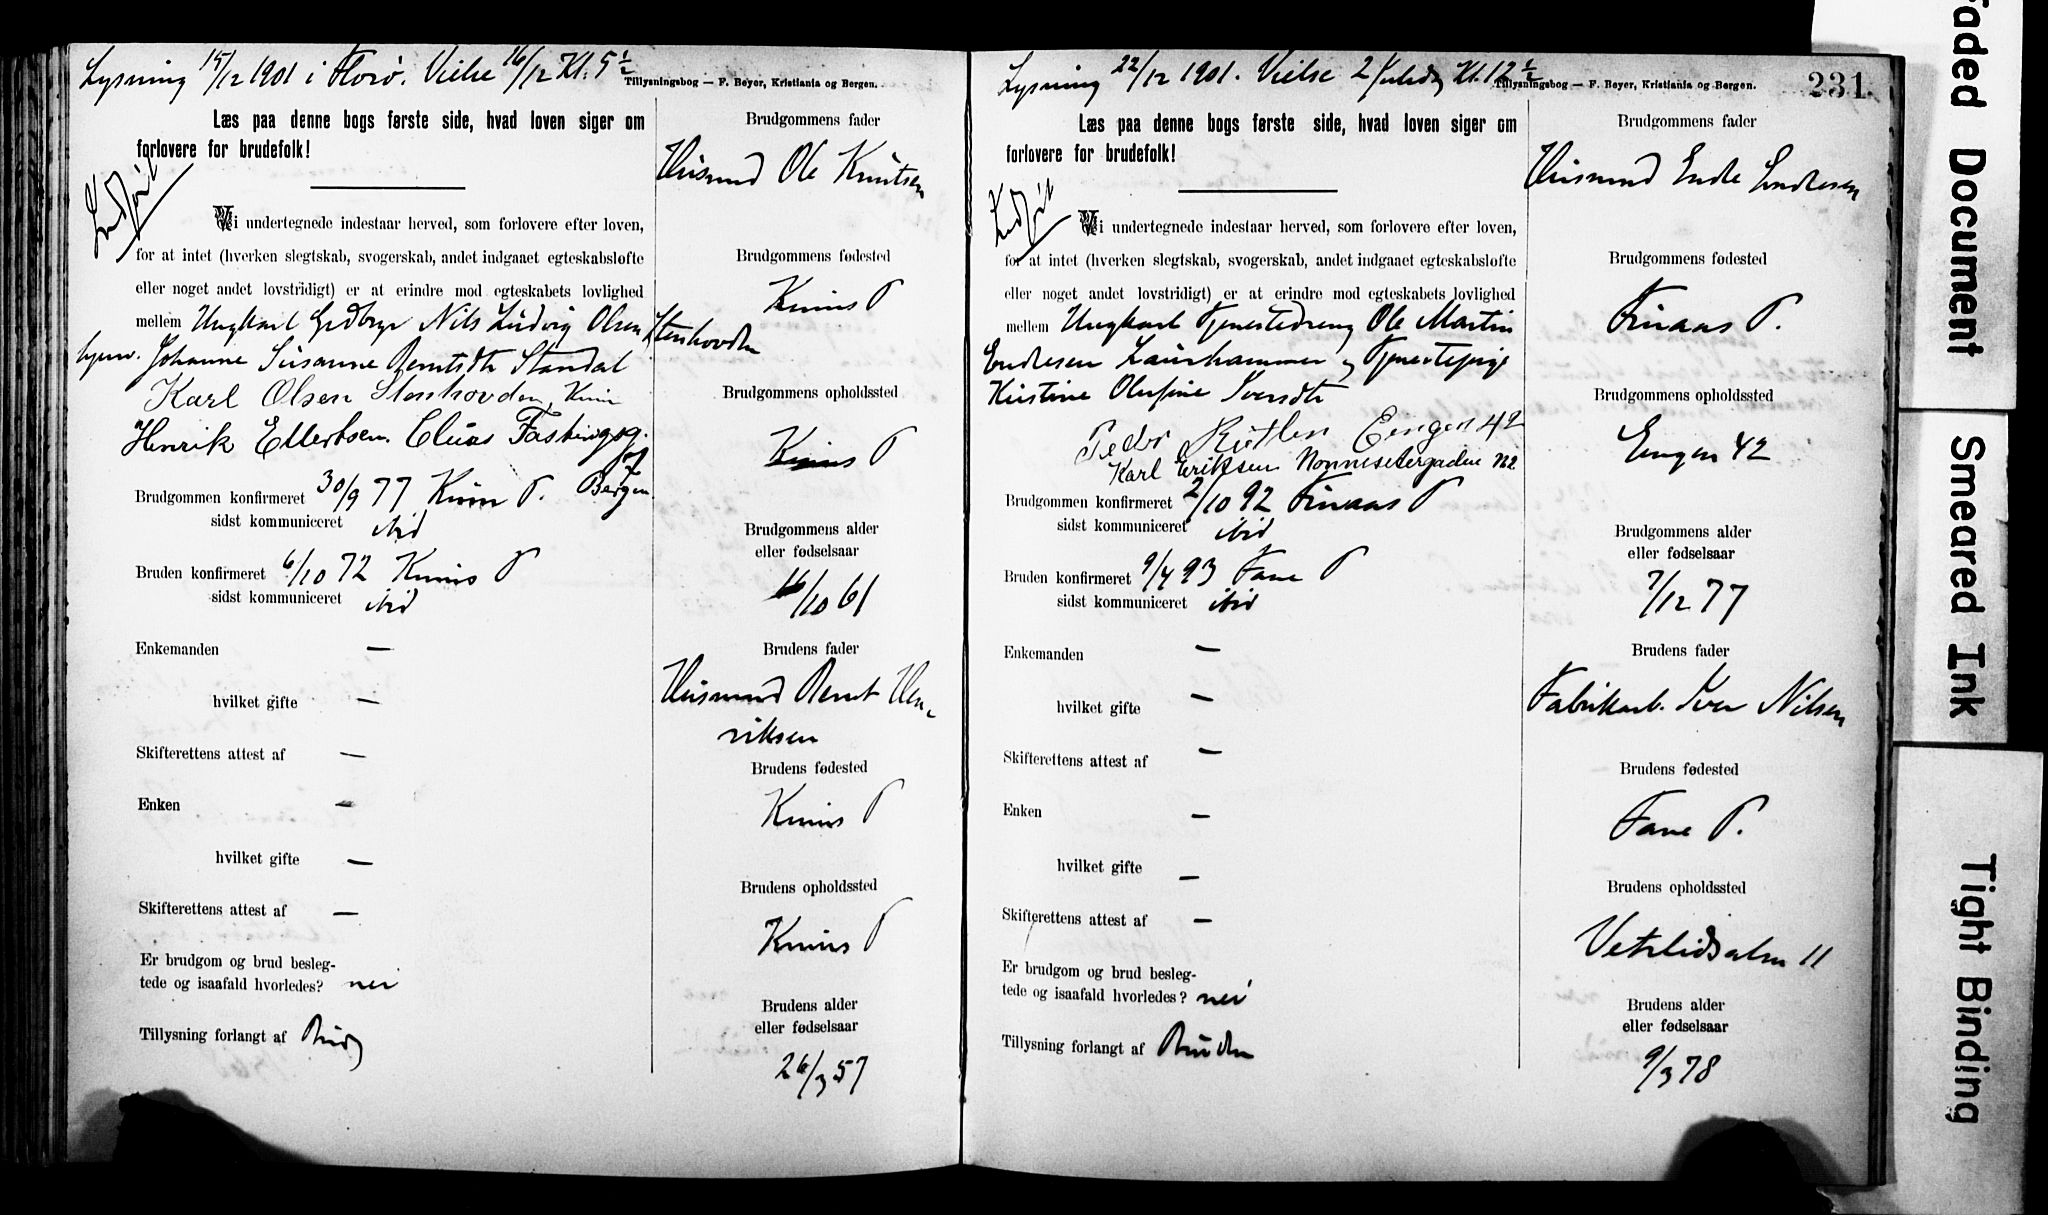 Lysning 15/12 1901 i Florø. Vielse 16/12 Kl. 5 1/2
Tillysningsbog — F. Beyer, Kristiania og Bergen.
Læs paa denne bogs første side, hvad loven siger om
forlovere for brudefolk!
Indført
Vi undertegnede indestaar herved, som forlovere efter loven,
for at intet (hverken slegtskab, svogerskab, andet indgaaet egteskabsløfte
eller noget andet lovstridigt) er at erindre mod egteskabets lovlighed
mellem Ungkarl Grdbrgr Nils Ludvig Olsen Stenhovden
Johanne Susanne Berntsdtr Standal
Karl Olsen Stenhovden, Kinn
Henrik Ellertsen. Claus Fastingsg.
7 Bergen
Brudgommen konfirmeret 30/9 77 Kinn P.
sidst kommuniceret ibid
Bruden konfirmeret 6/10 72 Kinns P
sidst kommuniceret ibid
Enkemanden —
hvilket gifte —
Skifterettens attest af —
Enken —
hvilket gifte —
Skifterettens attest af —
Er brudgom og brud besleg-
tede og isaafald hvorledes? nei
Tillysning forlangt af Brudg
Brudgommens fader
Husmand Ole Knutsen
Brudgommens fødested
Kinns P
Brudgommens opholdssted
Kinns P
Brudgommens alder
eller fødselsaar
16/10 61
Brudens fader
Husmand Bernt Hen-
riksen
Brudens fødested
Kinns P
Brudens opholdssted
Kinns P
Brudens alder
eller fødselsaar
26/3 57
Lysning 22/12 1901. Vielse 2 Juledg Kl. 12 1/2
Tillysningsbog — F. Beyer, Kristiania og Bergen.
231.
Læs paa denne bogs første side, hvad loven siger om
forlovere for brudefolk!
Indført
Vi undertegnede indestaar herved, som forlovere efter loven,
for at intet (hverken slegtskab, svogerskab, andet indgaaet egteskabsløfte
eller noget andet lovstridigt) er at erindre mod egteskabets lovlighed
mellem Ungkarl Tjenestedreng Ole Martin
Endresen Laurhammer og Tjenestepige
Kristine Olufine Iversdtr
Peder Engen 42
Karl Eriksen Nonnesetergaden N2
Brudgommen konfirmeret 2/10 92 Finaas P
sidst kommuniceret ibid
Bruden konfirmeret 9/4 93 Fane P
sidst kommuniceret ibid
Enkemanden —
hvilket gifte —
Skifterettens attest af —
Enken —
hvilket gifte —
Skifterettens attest af —
Er brudgom og brud besleg-
tede og isaafald hvorledes? nei
Tillysning forlangt af Bruden
Brudgommens fader
Husmand Endre Endresen
Brudgommens fødested
Finaas P.
Brudgommens opholdssted
Engen 42
Brudgommens alder
eller fødselsaar
7/12 77
Brudens fader
Fabrikarb. Iver Nilsen
Brudens fødested
Fane P.
Brudens opholdssted
Vetrlidsalm 11
Brudens alder
eller fødselsaar
9/3 78
faded Document
Smeared Ink
Tight Binding